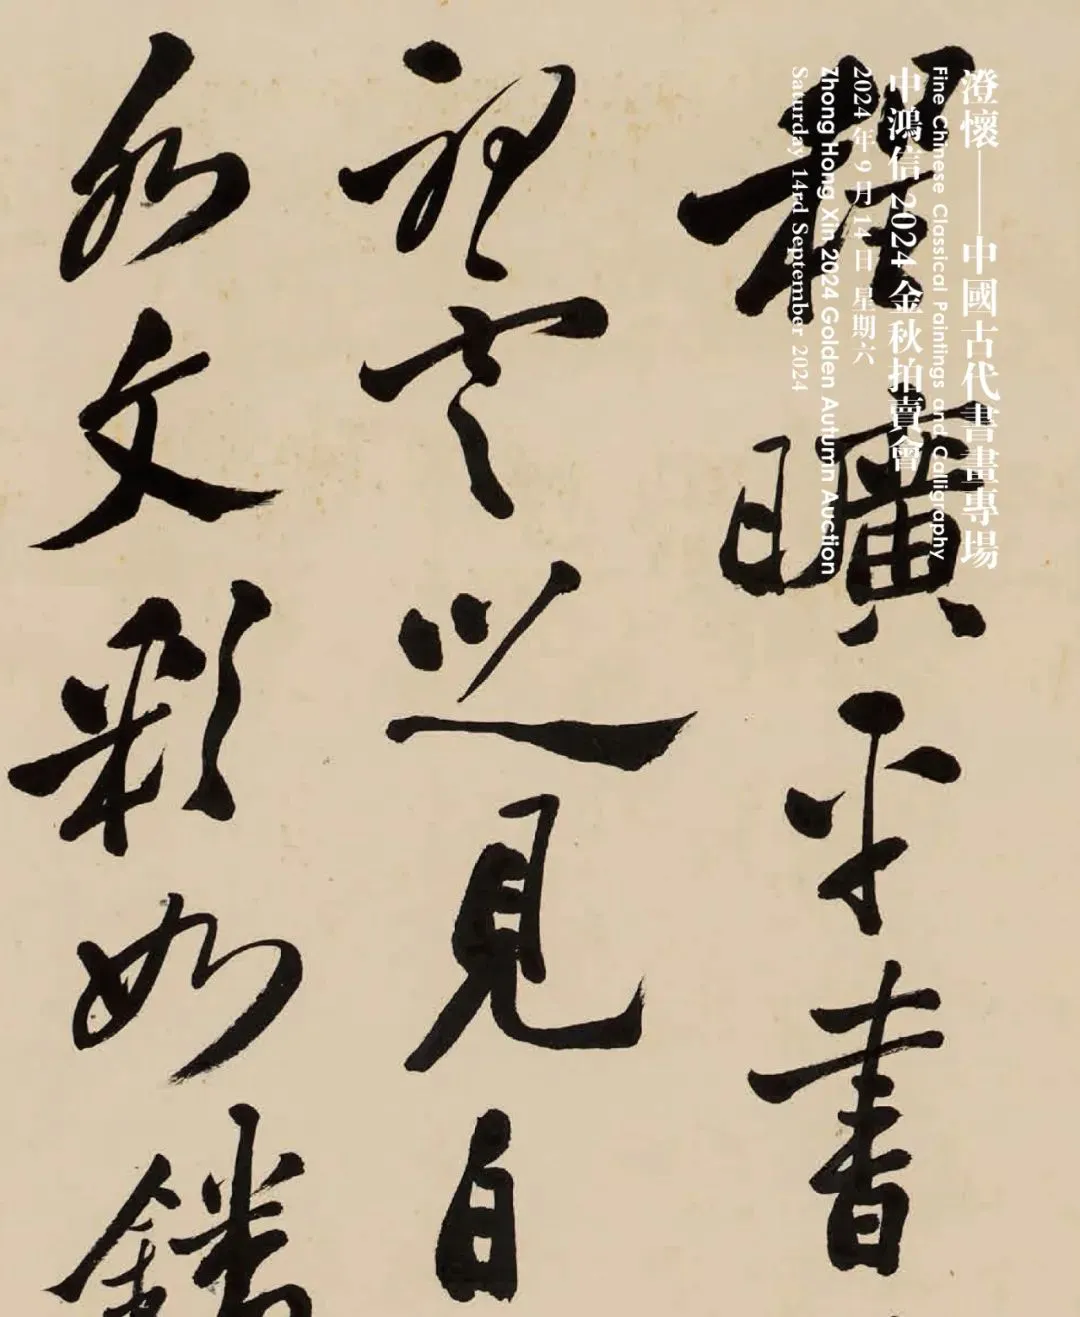 澄懷——中國古代書畫專場
Fine Chinese Classical Paintings and Calligraphy
中鴻信2024金秋拍賣會
2024年9月14日 星期六
Zhong Hong Xin 2024 Golden Autumn Auction
Saturday 14rd September 2024
程曠平書
見自
文彩如